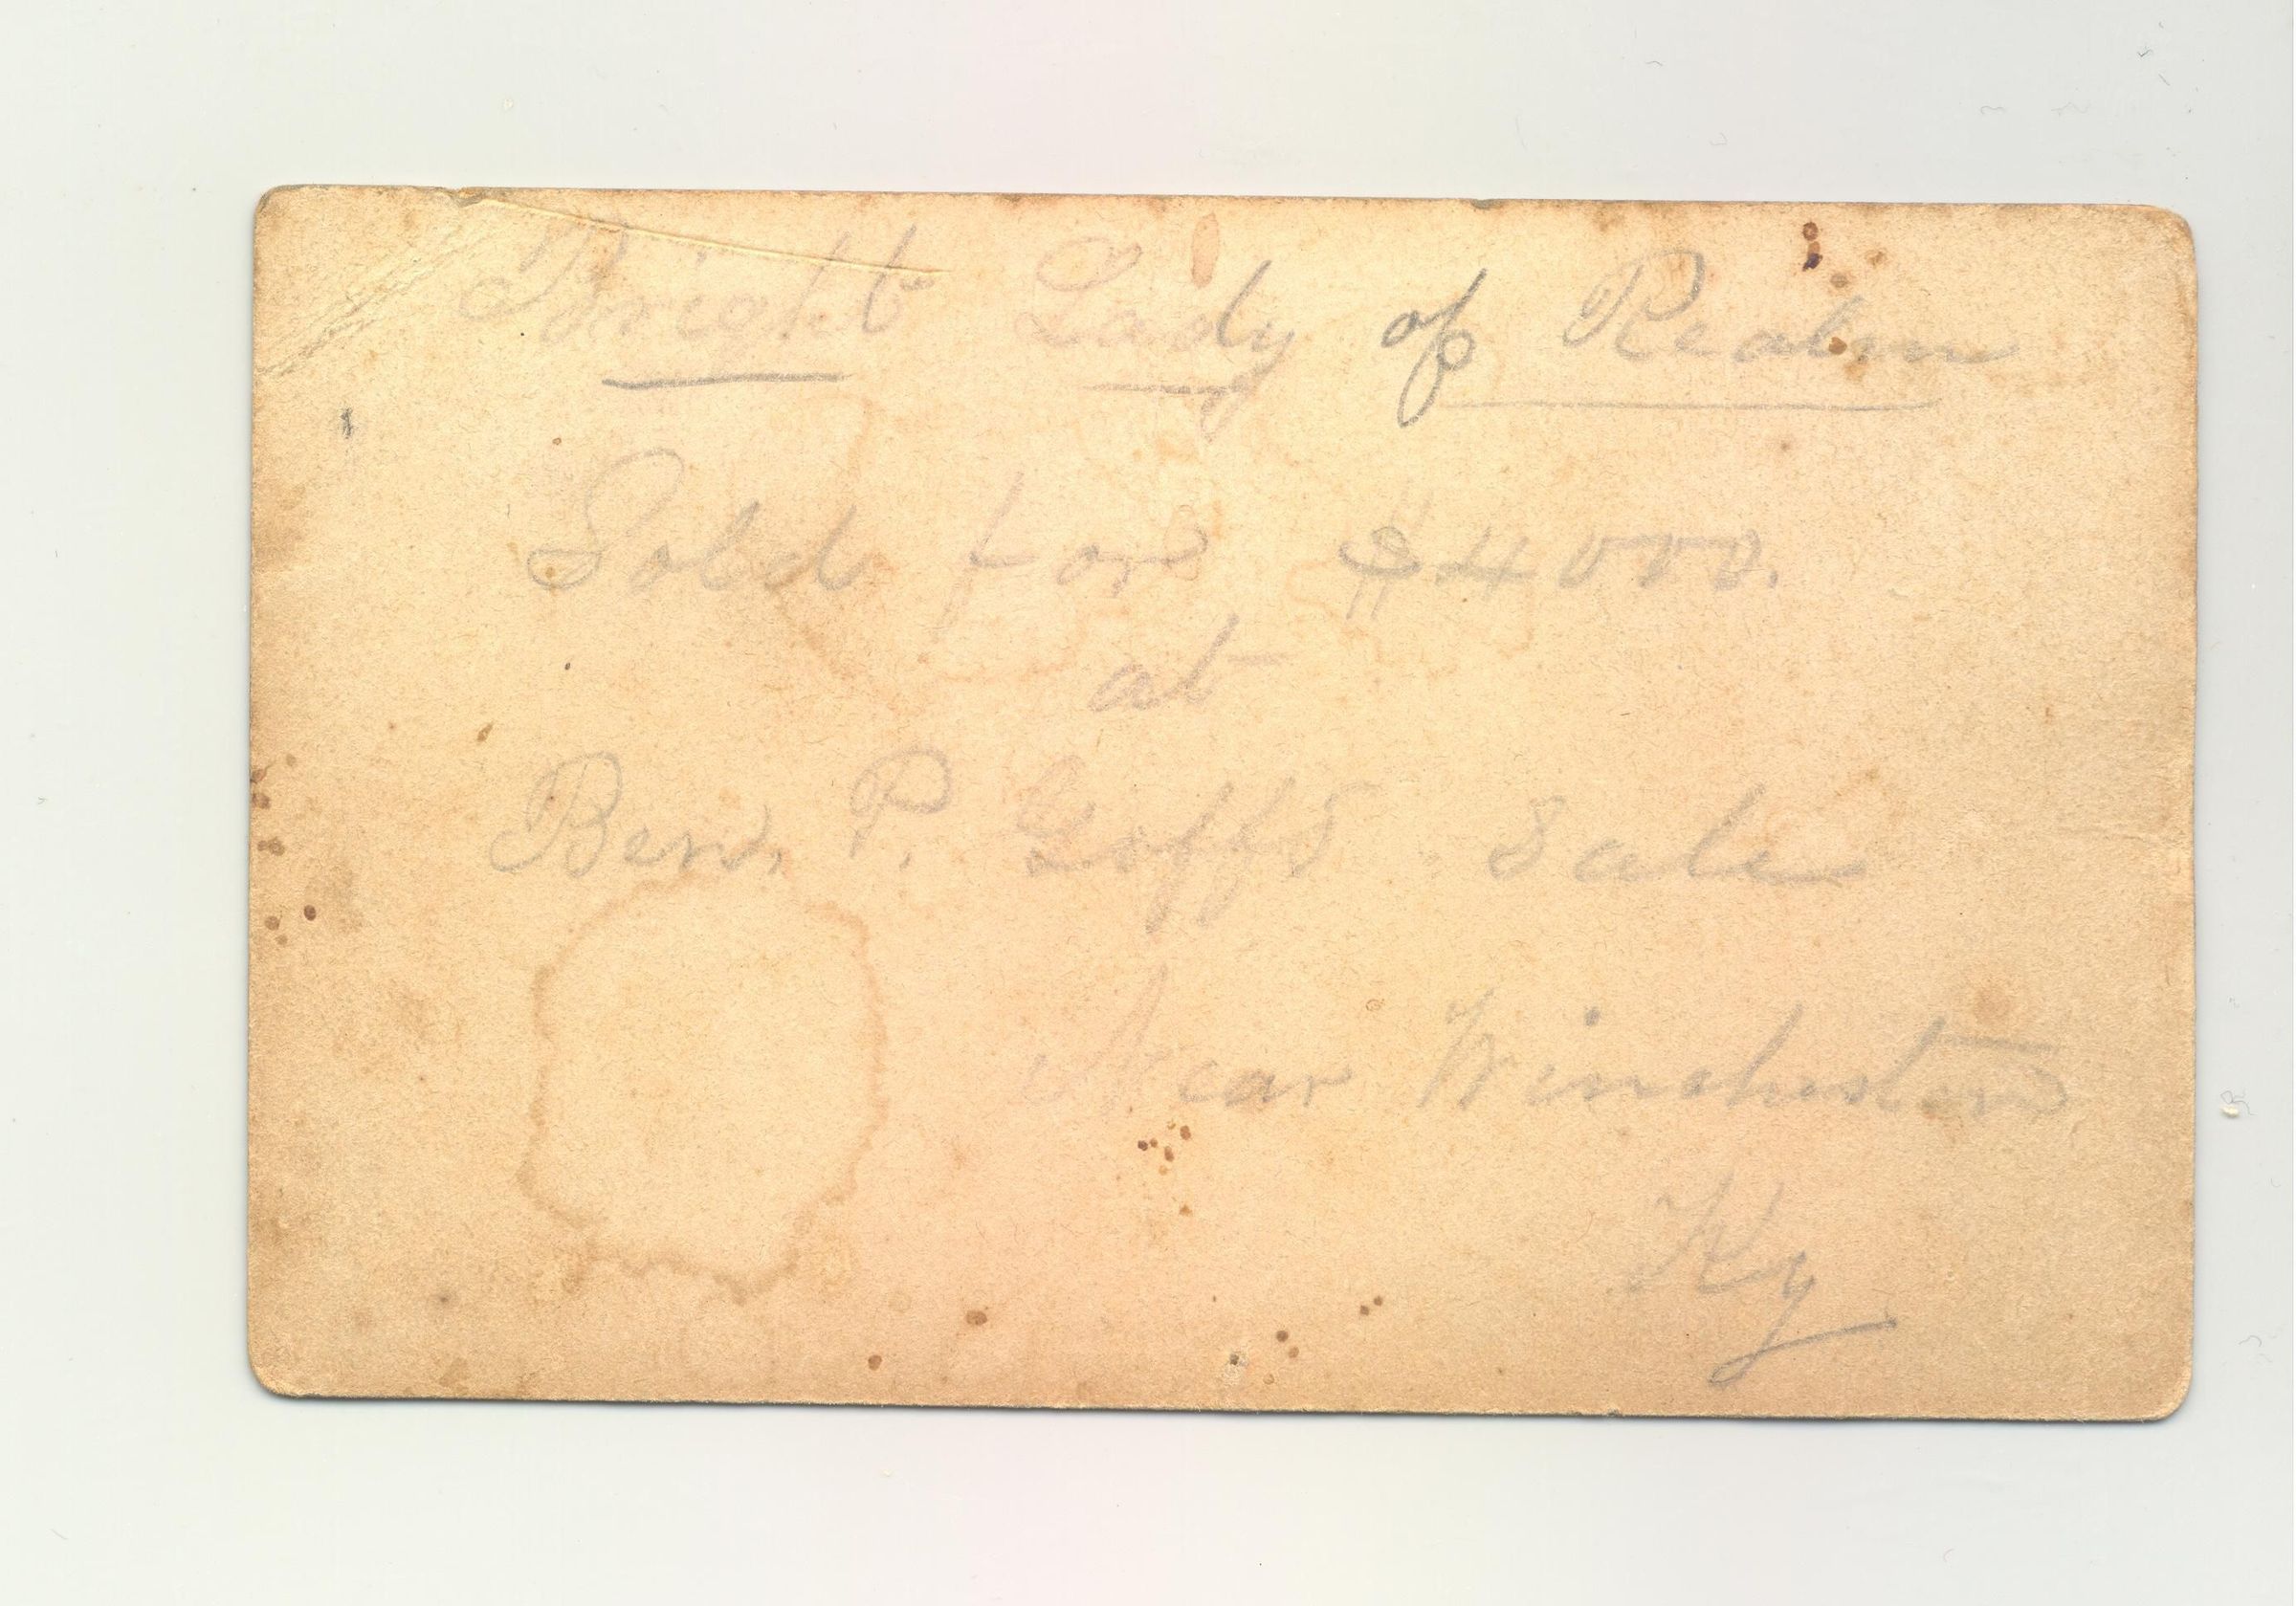 Bright Lady of Realm
Sold for $4000.
at
Ben. P. Goffs Sale
Near Winchester
Ky